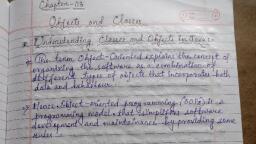 Chapter-03
Objects and Classes
* Understanding Classes and Objects in Java :-
=> The term Object-Oriented explains the concept of
organizing the software as a combination of
different types of objects that incorporates both
data and behaviour.
=> Hence, Object-oriented programming (OOPs) is a
programming model that simplifies software
development and maintenance by providing some
rules.